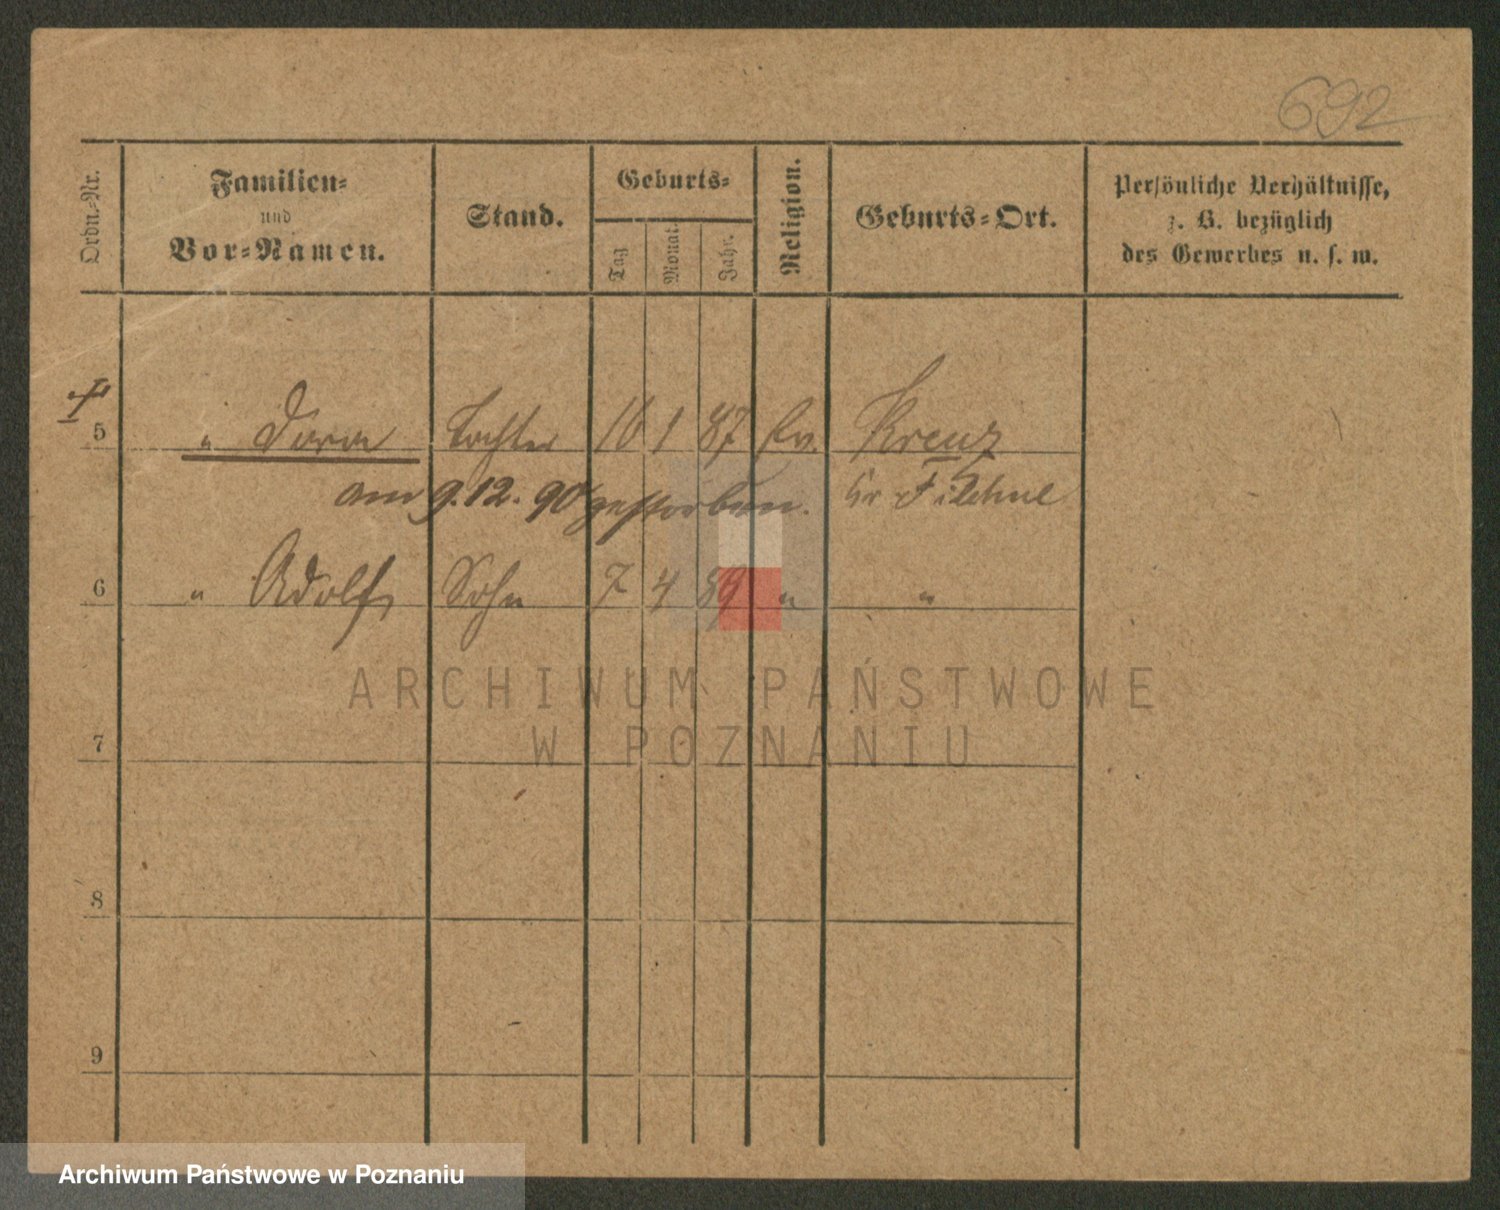 692
Ordn.-Nr.
Familien-
und
Vor-Namen.
Stand.
Geburts-
Tag
Monat.
Jahr.
Religion.
Geburts-Ort.
Persönliche Verhältnisse,
z. B. bezüglich
des Gewerbes u. s. w.
5 " Dora Tochter 16 1 87 Ev. Kreuz
am 9.12.90 gestorben. Kr Filehne
6 " Adolf Sohn 7 4 89 " "
ARCHIWUM PAŃSTWOWE
W POZNANIU
7
8
9
Archiwum Państwowe w Poznaniu